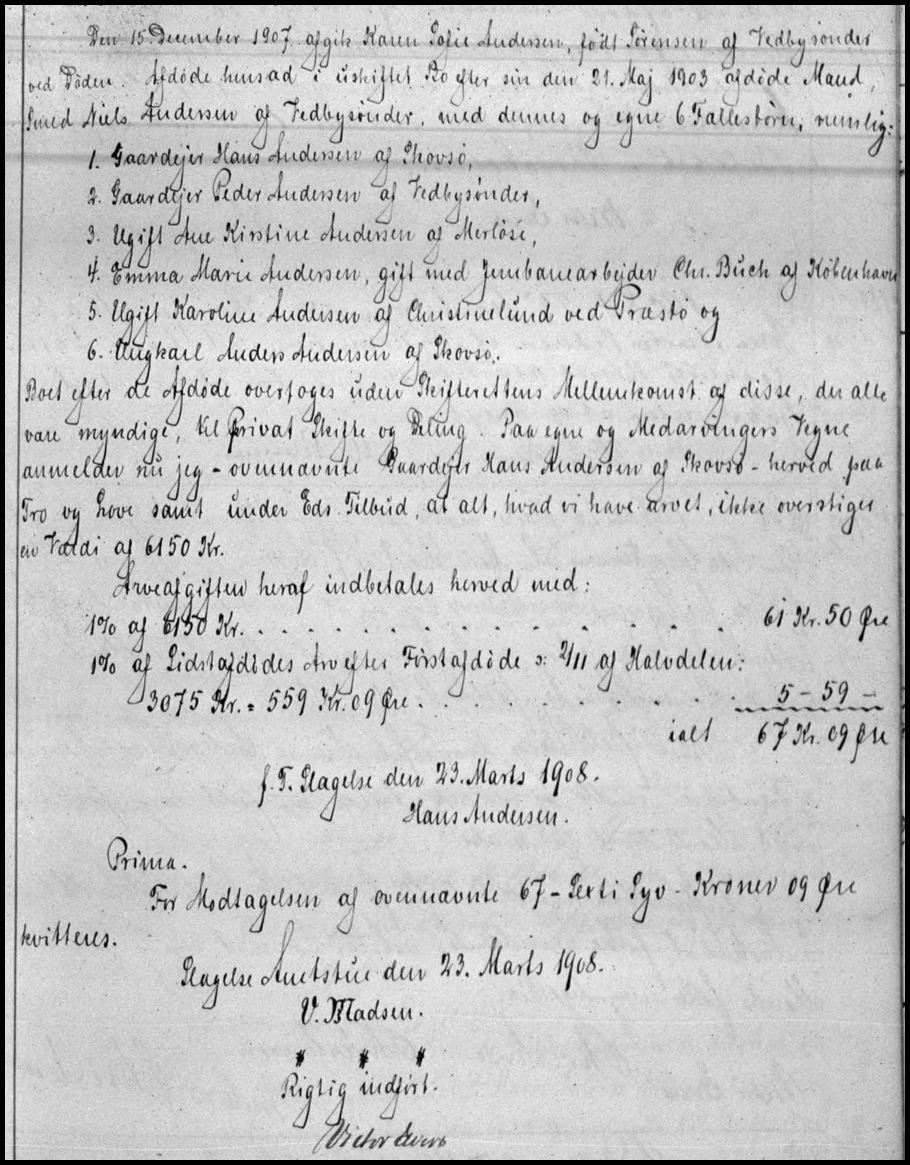 Den 15. December 1907 afgik Karen Sofie Andersen, født Sørensen af Vedbysønder
ved Døden. Afdøde hensad i uskiftet Bo efter sin den 21. Maj 1903 afdøde Mand,
Smed Niels Andersen af Vedbysønder, med dennes og egne 6 Fællesbørn, nemlig:
1. Gaardejer Hans Andersen af Skovsø,
2. Gaardejer Peder Andersen af Vedbysønder,
3. Ugift Ane Kirstine Andersen af Merløse,
4. Emma Marie Andersen, gift med Jernbanearbejder Chr. Buch af København
5. Ugift Karoline Andersen af Christinelund ved Præstø og
6. Ungkarl Anders Andersen af Skovsø.
Boet efter de Afdøde overtoges uden Skifterettens Mellemkomst af disse, der alle
vare myndige, til privat Skifte og Deling. Paa egne og Medarvingers Vegne
anmelder nu jeg - ovennævnte Gaardejer Hans Andersen af Skovsø - herved paa
Tro og Love samt under Eds Tilbud, at alt, hvad vi have arvet, ikke overstiger
en Værdi af 6150 Kr.
Arveafgiften heraf indbetales herved med:
1% af 6150 Kr. . . . . . . . . . . . . . . . 61 Kr. 50 Øre
1% af Sidstafdødes Arv efter Førstafdøde ɔ: 2/11 af Halvdelen:
3075 Kr. = 559 Kr. 09 Øre. . . . . . . . . . 5 - 59 -
ialt 67 Kr. 09 Øre
f. T. Slagelse den 23. Marts 1908.
Hans Andersen.
Prima.
For Modtagelsen af ovennævnte 67 - Sexti Syv - Kroner 09 Øre
kvitteres.
Slagelse Amtstue den 23. Marts 1908.
V. Madsen.
* * *
Rigtig indført.
Victor